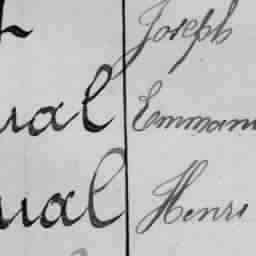 Joseph
ual Emmanu
ual Henri